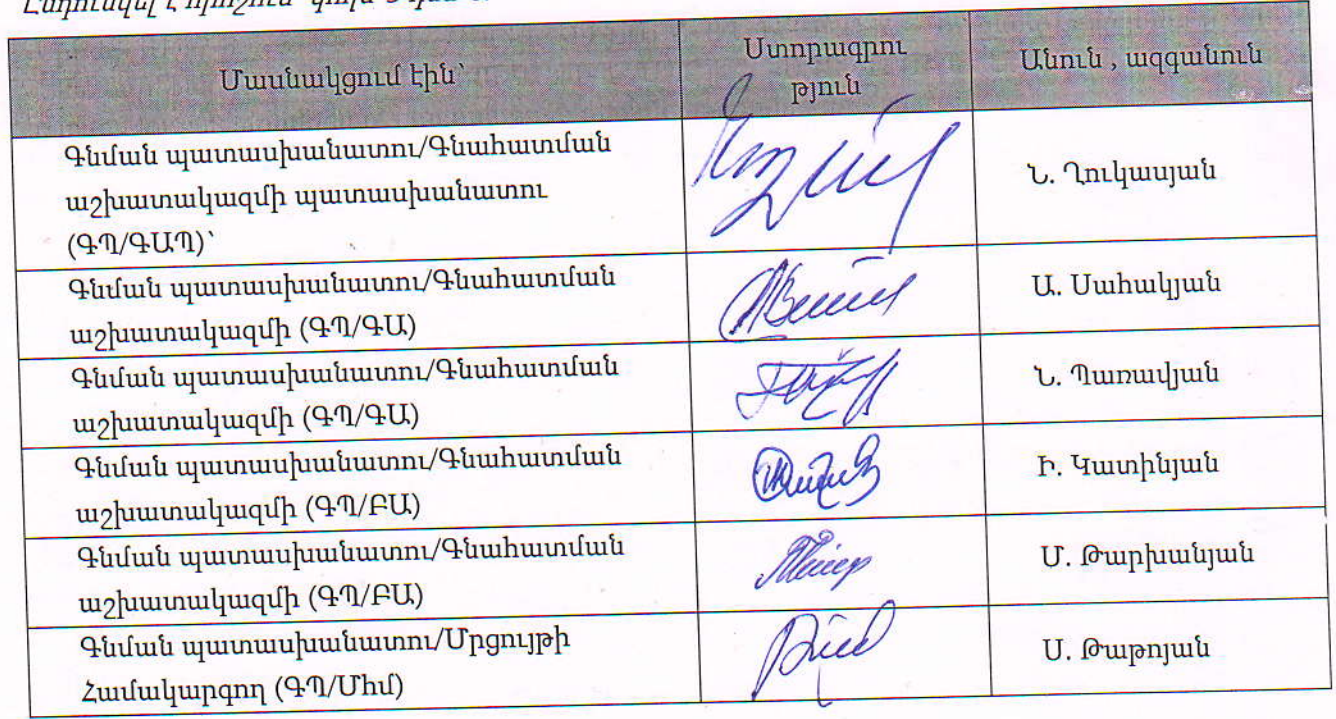 Մասնակցում էին՝
Ստորագրու
թյուն
Անուն , ազգանուն
Գնման պատասխանատու/Գնահատման
աշխատակազմի պատասխանատու
(ԳՊ/ԳԱՊ)՝
Ն. Ղուկասյան
Գնման պատասխանատու/Գնահատման
աշխատակազմի (ԳՊ/ԳԱ)
Ա. Սահակյան
Գնման պատասխանատու/Գնահատման
աշխատակազմի (ԳՊ/ԳԱ)
Ն. Պառավյան
Գնման պատասխանատու/Գնահատման
աշխատակազմի (ԳՊ/ԲԱ)
Ի. Կատինյան
Գնման պատասխանատու/Գնահատման
աշխատակազմի (ԳՊ/ԲԱ)
Մ. Թարխանյան
Գնման պատասխանատու/Մրցույթի
Համակարգող (ԳՊ/Մհմ)
Ս. Թաթոյան